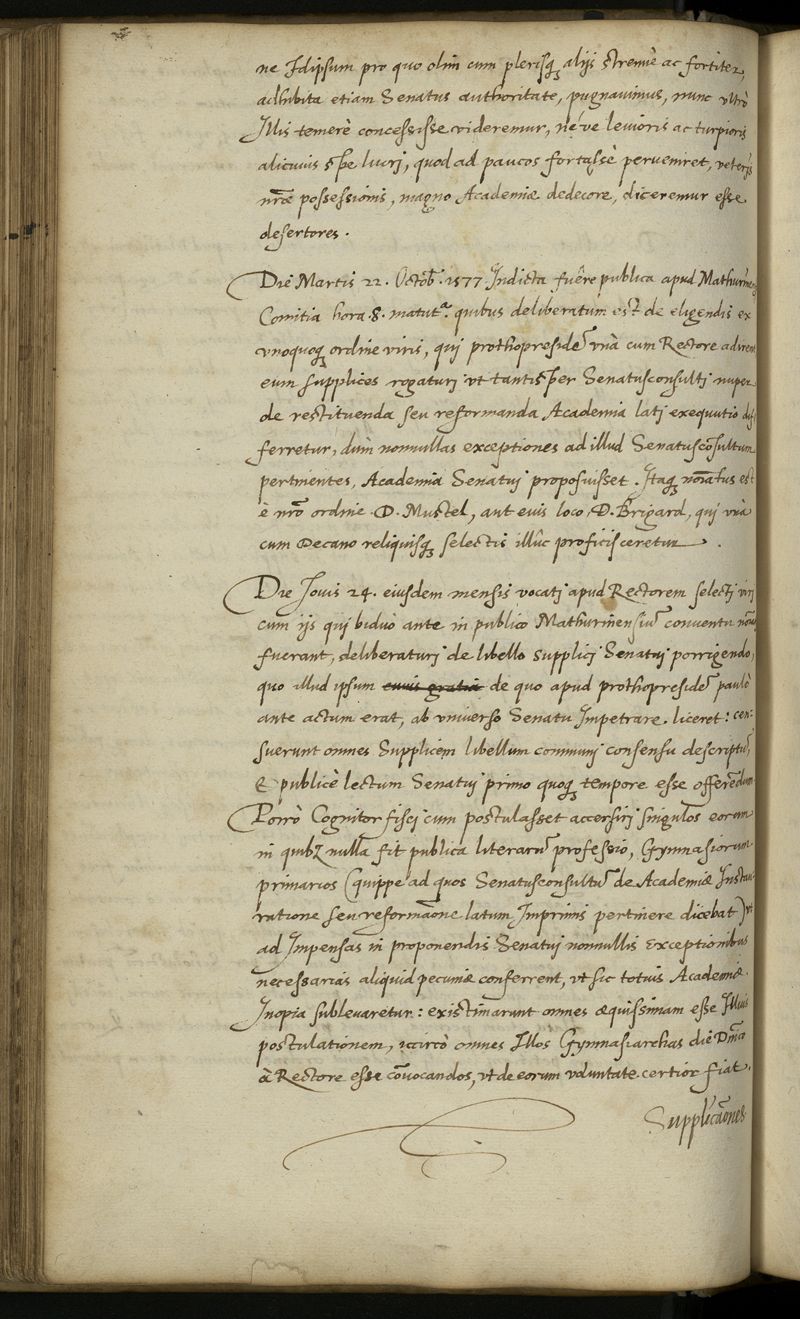 ne Idipsum pro quo olim cum plerisq; alijs strenuè ac fortiter,
adhibita etiam Senatus authoritate, pugnauimus, nunc vltrò
Illis temerè concessisse videremur, néve leuioris ac turpioris
alicuius spe lucri, quod ad paucos fortassè perueniret, veteris
nr̃æ possessionis, magno Academiæ dedecore, diceremur esse
desertores.
Die Martis 22. Octob. 1577. Indicta fuêre publica apud Mathurinen
Comitia hora .8. matutᵃ. quibus deliberatum est de eligendis ex
vnoquoq; ordine viris, qui prothopresidẽ vnà cum Rectore adirent
eum supplices rogaturi vt tantisper Senatusconsulti nuper
de restituenda seu reformanda Academia lati exequutio dif
ferretur, dum nonnullas exceptiones ad illud Senatuscõsultum
pertinentes, Academia Senatui proposuisset. Itaq; noĩatus est
è nr̃o ordine D. Mustel, aut eius loco, D. Brigard, qui vnà
cum Decano reliquisq; selectis illûc proficisceretur.
Die Iouis 24. eiusdem mensis vocati apud Rectorem selecti viri
cum ijs qui biduò ante in publico Mathurinensiũ conuentu
fuerant, deliberaturi de libello supplici Senatui porrigendo,
quo illud ipsum cuius gratia de quo apud prothopresidẽ paulò
ante actum erat, ab vniuerso Senatu Impetrare liceret: cen:
suerunt omnes Supplicem libellum communi consensu descriptũ,
& publicè lectum Senatui primo quoq; tempore esse offerẽdum
Porrò Cognitor fisci cum postulasset accersiri singulos eorum
in quibꝫ nulla fit publica literarũ professio, Gymnasiorum
primarios (quippe ad quos Senatusconsultũ de Academiæ Instau
ratione seu reformaõne latum Imprimis pertinere dicebat) vt
ad Impensas in proponendis Senatui nonnullis Exceptionibus
necessarias aliquid pecuniæ conferrent, vt sic totius Academiæ
Inopia subleuaretur: existimarunt omnes æquissimam esse Illius
postulationem, iccircò omnes Illos Gymnasiarchas die Dm̃ica
à Rectore esse cõuocandos, vt de eorum voluntate certior fiat.
Supplicaõnes